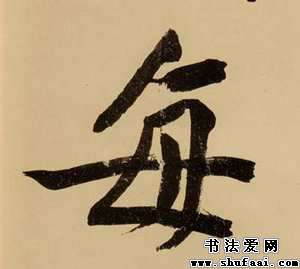 每
书法爱网
www.shufaai.com